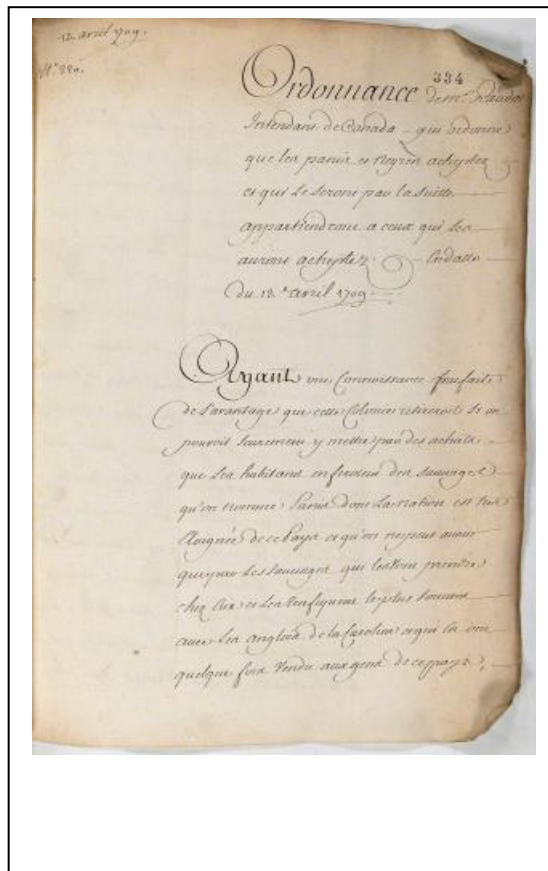 12 avril 1709.
N.º 220.
334
Ordonnance de mr. Raudot
Intendant de Canada qui ordonne
que les panis et Negres acheptez
et qui le seront par la suitte
appartiendront a ceux qui les
auront acheptez. En datte
du 13.e avril 1709
Ayant une Connoissance parfaite
de l'avantage que cette Colonie retireroit si on
pouvoit seurement y mettre par des achats
que les habitans en feroient des sauvages
qu'on nomme Panis dont La nation est tres
Eloignée de ce Pays et qu'on ne peut avoir
que par les sauvages qui les vont prendre
chez Eux et les trafiquent le plus souvent
avec les anglois de la Caroline et qui en ont
quelque fois Vendu aux gens de ce pays,